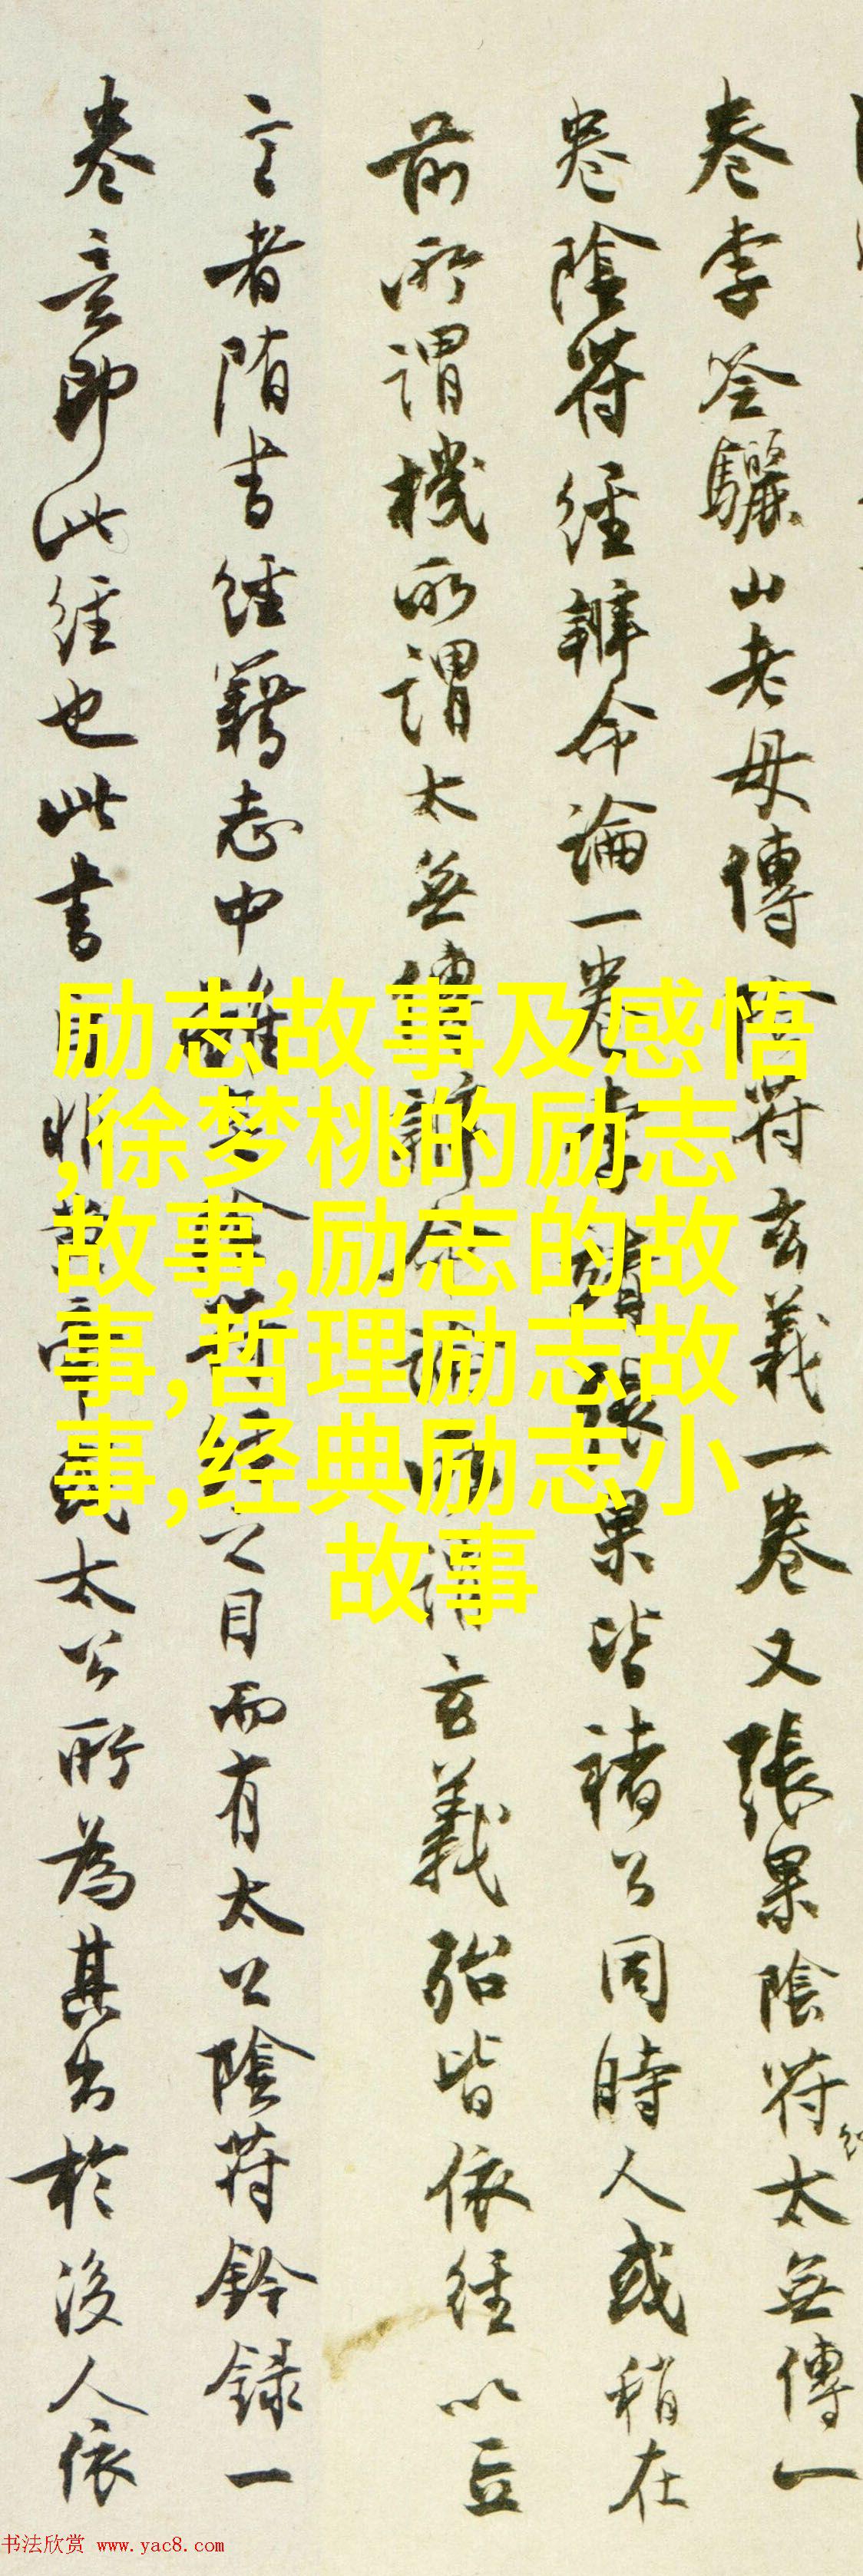 卷李筌驪山老母傳陰符玄義一卷又張果陰符太無傳一
卷陰符經辨命論一卷李靖張果皆褚公同時人或稍在
前所謂機所謂太無傳辨命論所謂玄義殆皆依經以立
言者隋書經籍志中雖無陰符經之目而有太公陰符鈐錄一
卷意即此經也此書自非黃帝或太公所為其出於後人依
励志故事及感悟
,徐梦桃的励志
故事,励志的故
事,哲理励志故
事,经典励志小
故事
书法欣赏 www.yac8.com